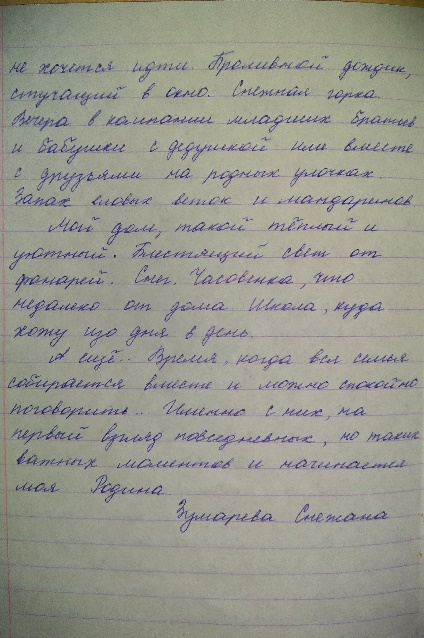 не хочется идти. Проливной дождик,
стучащий в окно. Снежная горка.
Вечера в компании младших братьев
и бабушки с дедушкой или вместе
с друзьями на родных улочках.
Запах еловых веток и мандаринов
Мой дом, такой тёплый и
уютный. Блестящий свет от
фонарей. Снег. Часовенка, что
недалеко от дома. Школа, куда
хожу изо дня в день.
А ещё.. Время, когда вся семья
собирается вместе и можно спокойно
поговорить.. Именно с них, на
первый взгляд повседневных, но таких
важных моментов и начинается
моя Родина.
Зумарева Снежана